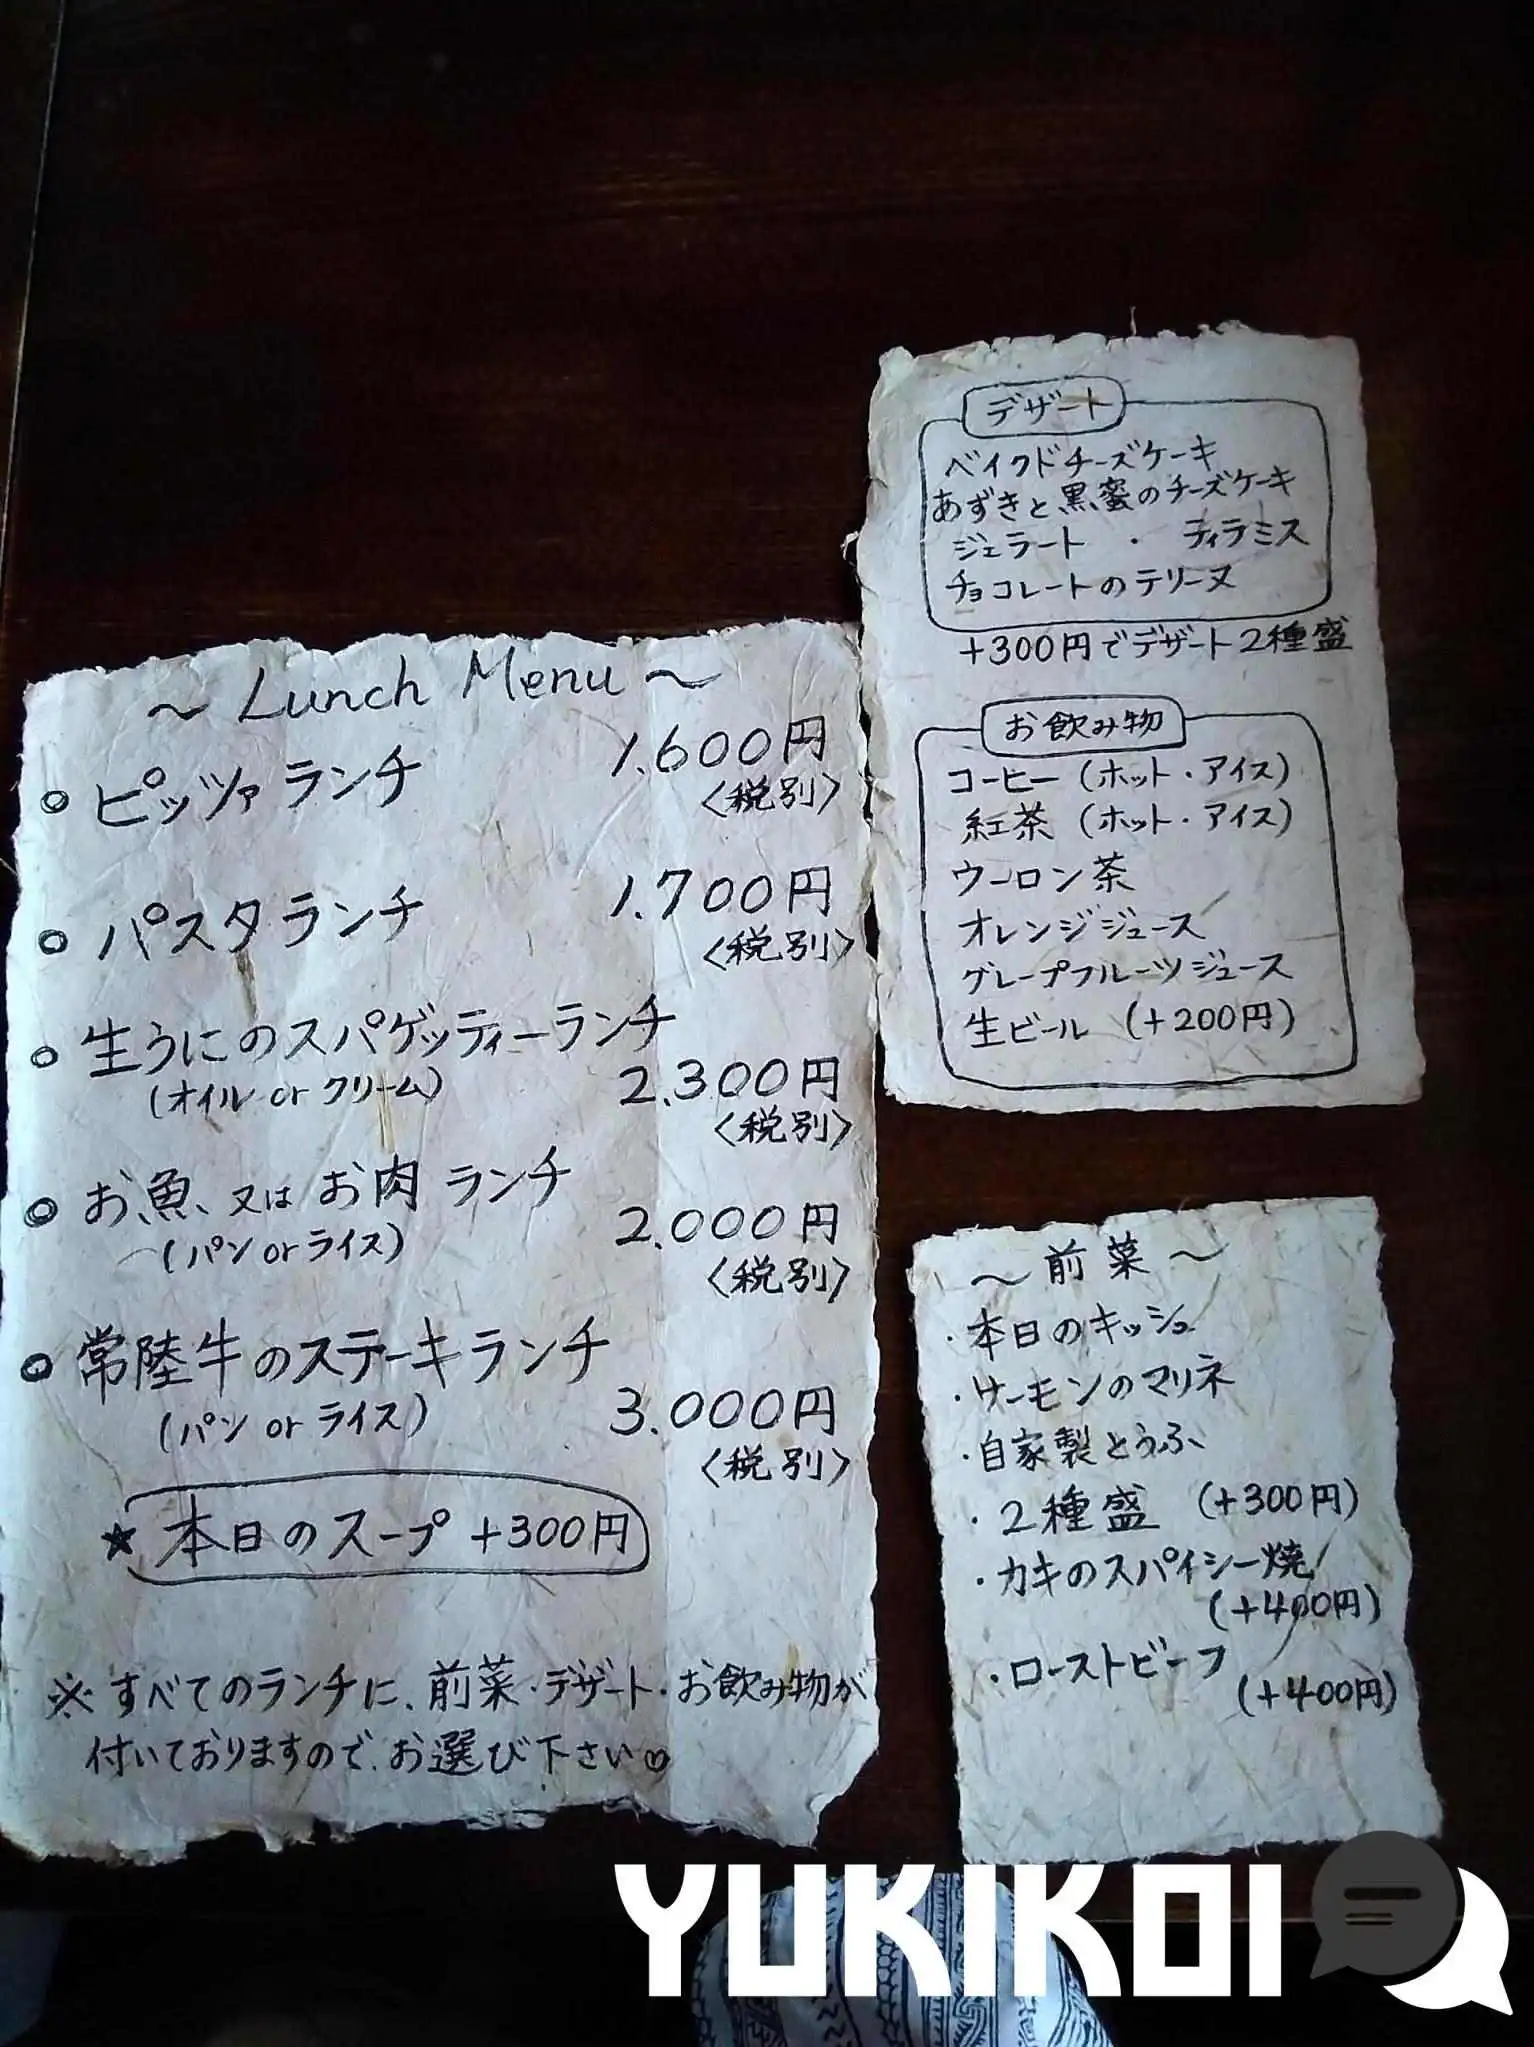 ～ Lunch Menu ～
ピッツァランチ 1.600円
〈税別〉
パスタランチ 1.700円
〈税別〉
生うにのスパゲッティーランチ
(オイル or クリーム) 2.300円
〈税別〉
お魚、又はお肉 ランチ
(パン or ライス) 2.000円
〈税別〉
常陸牛のステーキランチ
(パン or ライス) 3.000円
〈税別〉
★ 本日のスープ +300円
※すべてのランチに、前菜・デザート・お飲み物が
付いておりますので、お選び下さい♡
デザート
ベイクドチーズケーキ
あずきと黒蜜のチーズケーキ
ジェラート ・ ティラミス
チョコレートのテリーヌ
+300円でデザート2種盛
お飲み物
コーヒー (ホット・アイス)
紅茶 (ホット・アイス)
ウーロン茶
オレンジジュース
グレープフルーツジュース
生ビール (+200円)
～ 前菜 ～
・本日のキッシュ
・サーモンのマリネ
・自家製とうふ
・2種盛 (+300円)
・カキのスパイシー焼
(+400円)
・ローストビーフ
(+400円)
YUKIKOI